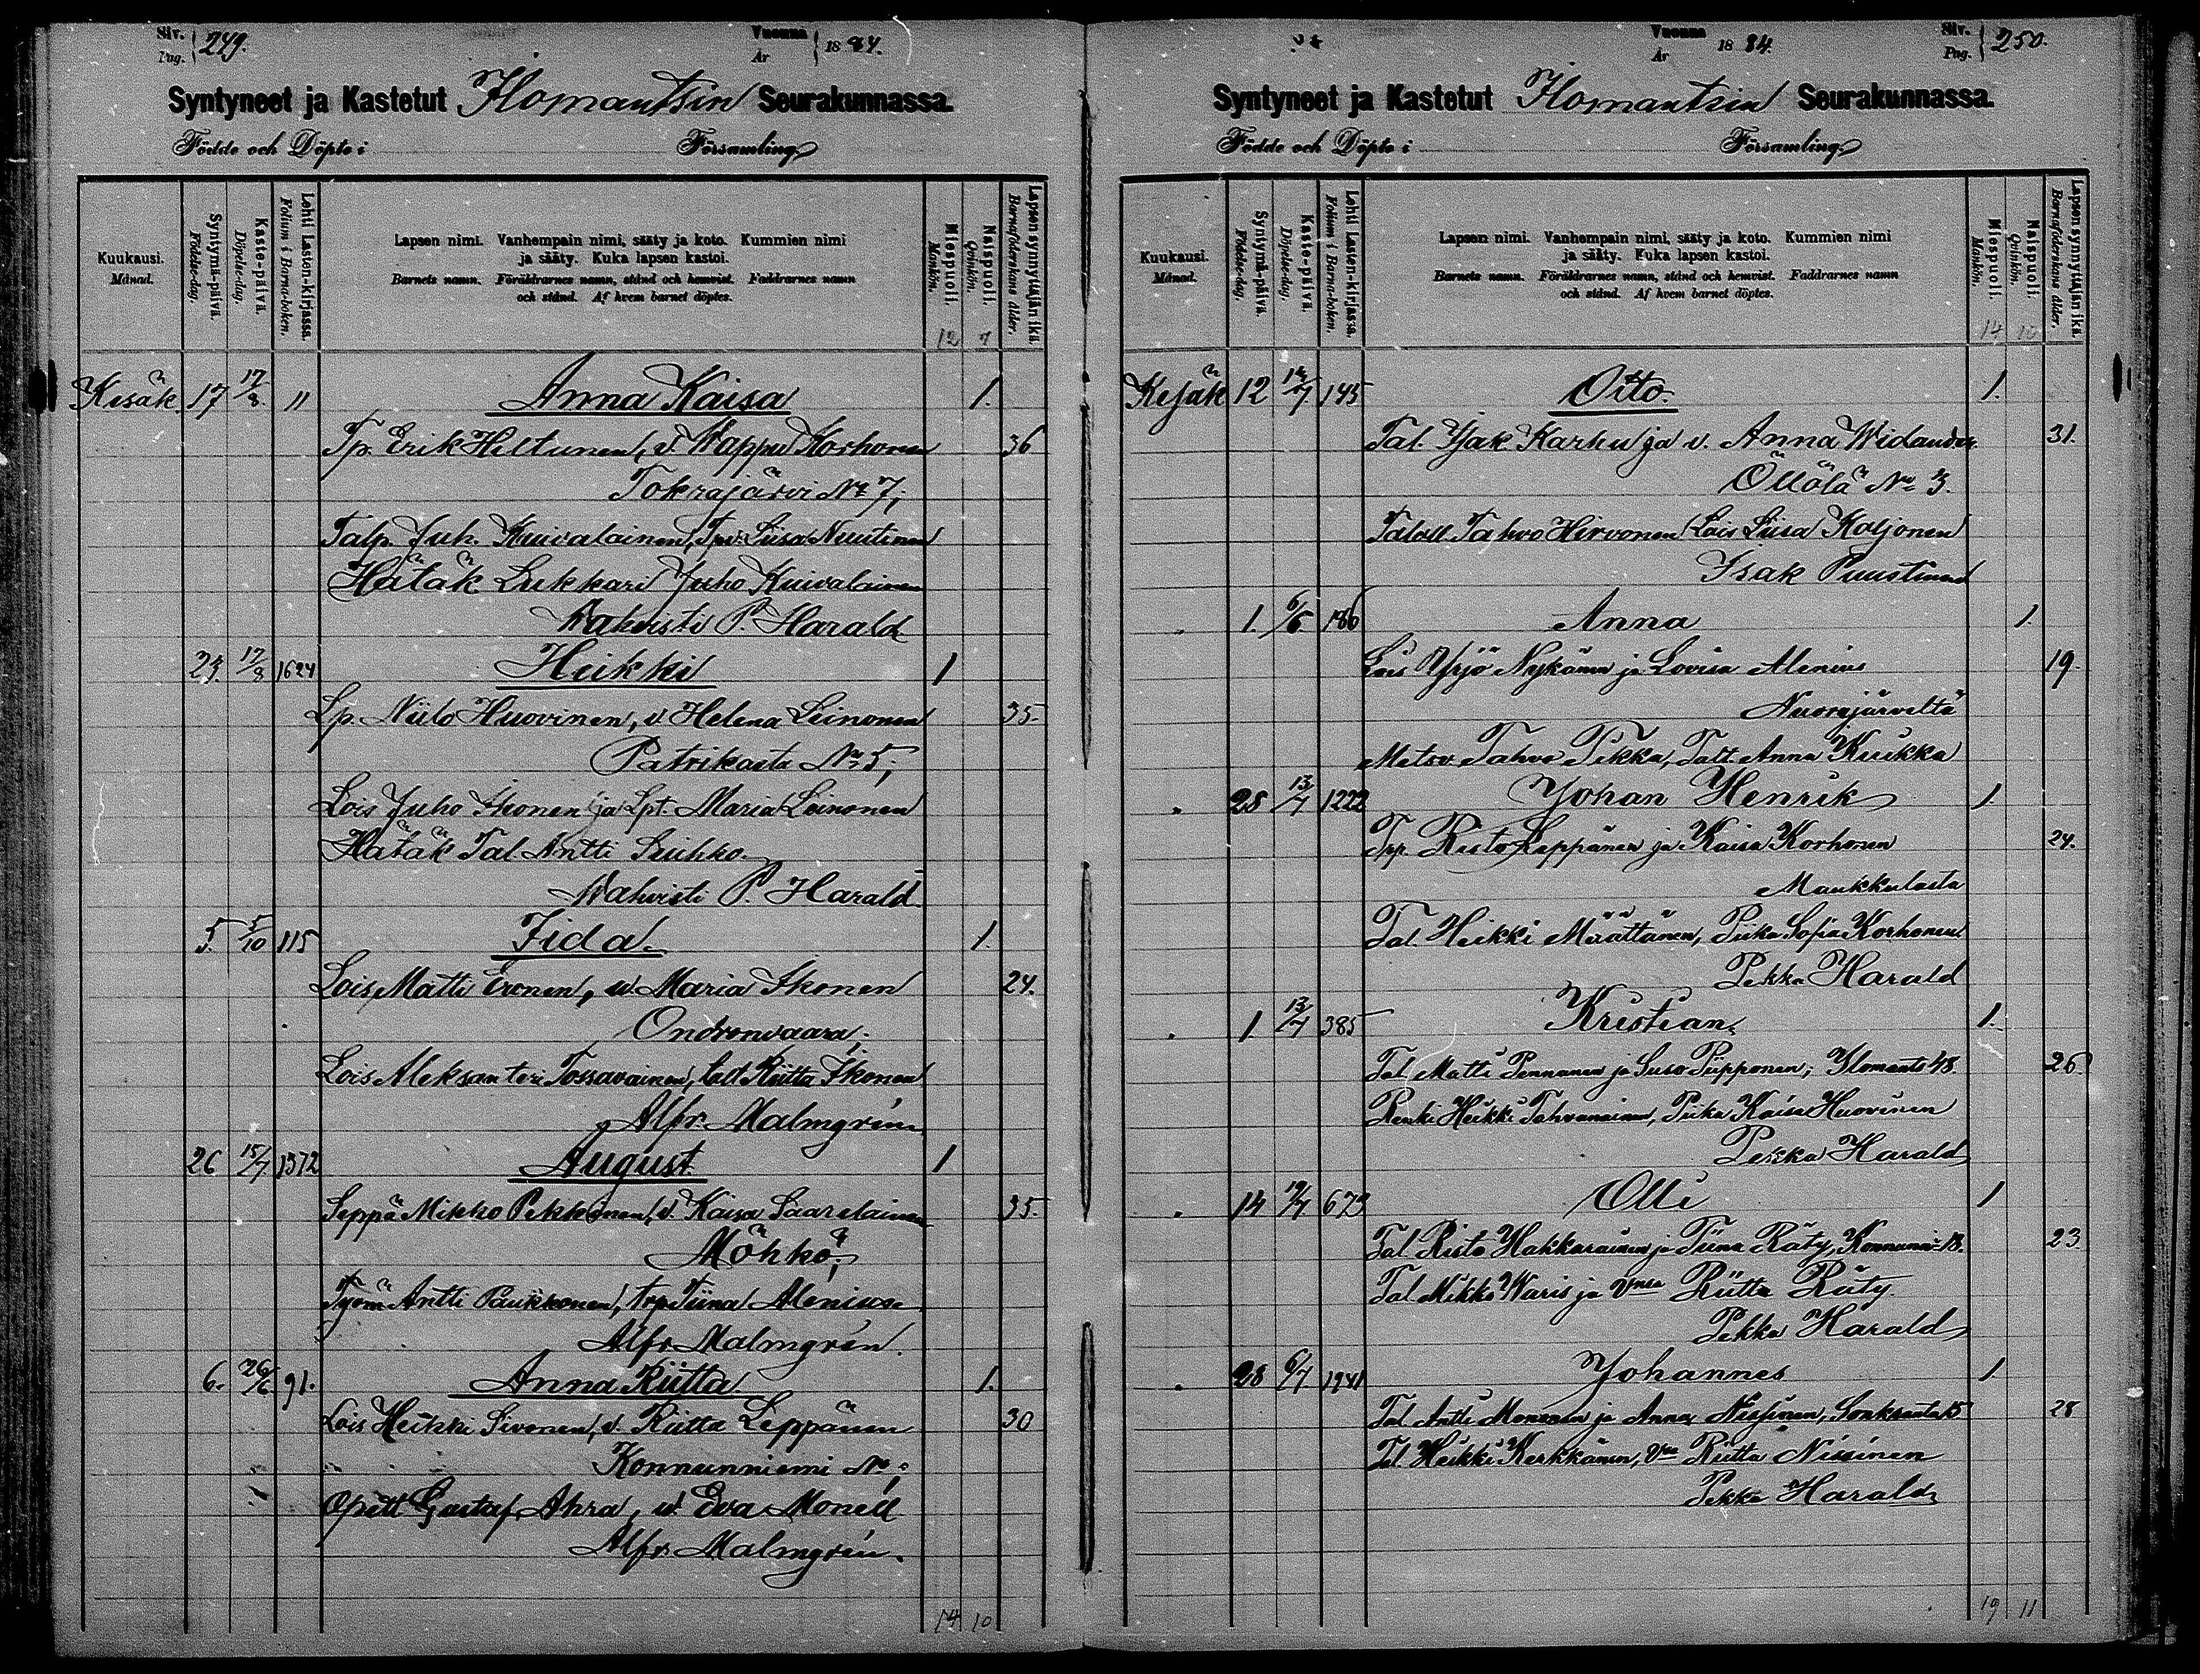 Siv. Pag. 249. Vuonna År 1884.
Syntyneet ja Kastetut Ilomantsin Seurakunnassa.
Födde och Döpte i Församling
Kuukausi. Månad.
Syntymä-päivä. Födelse-dag.
Kaste-päivä. Döpelse-dag.
Lehti Lasten-kirjassa. Folium i Barna-boken.
Lapsen nimi. Vanhempain nimi, sääty ja koto. Kummien nimi
ja sääty. Kuka lapsen kastoi.
Barnets namn. Föräldrarnes namn, stånd och hemvist. Faddrarnes namn
och stånd. Af hvem barnet döptes.
Miespuoli. Mankön.
Naispuoli. Qvinkön.
Lapsen synnyttäjän ikä. Barnaföderskans ålder.
12 7
Kesäk. 17 17/8 11 Anna Kaisa 1.
Tp. Erik Hiltunen, v. Wappu Korhonen 36
Tokrajärvi No 7;
Talp. Juh. Kuivalainen, Tpv. Liisa Nuutinen
Hätäk Lukkari Juho Kuivalainen
Wahvisti P. Harald
24. 17/8 1624 Heikki 1
Lp. Niilo Huovinen, v. Helena Leinonen 35.
Patrikasta No 5;
Lois Juho Ikonen ja Lpt. Maria Leinonen
Hätäk Tal. Antti Suhko.
Wahvisti P. Harald
5. 5/10 115 Iida. 1.
Lois Matti Eronen, v. Maria Ikonen 24.
Ondronvaara;
Lois Aleksanteri Tossavainen, Riitta Ikonen
Alfr. Malmgrén
26 15/7 1372 August 1
Seppä Mikko Pekkinen, v. Kaisa Saarelainen 35.
Möhkö;
Työm Antti Paukkonen, trp Tiina Alenius.
Alfr. Malmgrén.
6. 26/6 91. Anna Riitta 1.
Lois Heikki Sivonen, v. Riitta Leppänen 30
Konnunniemi No ;
Opett Gustaf Ahra, v. Eva Monell
Alfr. Malmgrén.
14 10
Vuonna År 1884. Siv. Pag. 250.
Syntyneet ja Kastetut Ilomantsin Seurakunnassa.
Födde och Döpte i Församling
Kuukausi. Månad.
Syntymä-päivä. Födelse-dag.
Kaste-päivä. Döpelse-dag.
Lehti Lasten-kirjassa. Folium i Barna-boken.
Lapsen nimi. Vanhempain nimi, sääty ja koto. Kummien nimi
ja sääty. Kuka lapsen kastoi.
Barnets namn. Föräldrarnes namn, stånd och hemvist. Faddrarnes namn
och stånd. Af hvem barnet döptes.
Miespuoli. Mankön.
Naispuoli. Qvinkön.
Lapsen synnyttäjän ikä. Barnaföderskans ålder.
14 10
Kesäk 12 145 Otto. 1.
Tal. Isak Karhu ja v. Anna Widander 31.
Öllölä No 3.
Talall Tahvo Hirvonen Lois Liisa Koljonen
Isak Puustinen
" 1. 6/6. 186 Anna 1.
Lois Yrjö Nykänen ja Lovisa Alenius 19.
Nuorajärveltä
Metsv. Tahvo Pekka, Talt. Anna Kuikka
" 28 13/7 1222 Johan Henrik 1.
Tpp. Risto Leppänen ja Kaisa Korhonen 24.
Maukkulasta
Tal. Heikki Määttänen, Piika Sofia Korhonen
Pekka Harald
" 1. 13/7 385 Kristian. 1.
Tal. Matti Pennanen ja Suso Piipponen; Ilomants 48. 26.
Renki Heikki Tahvanainen, Piika Kaisa Huovinen
Pekka Harald
" 14 673 Olli 1
Tal. Risto Hakkarainen ja Tiina Räty, Konnunni 18. 23.
Tal. Mikko Waris ja Vmsa Riitta Räty.
Pekka Harald
" 28 6/7 1941 Johannes 1
Tal. Antti Monnonen ja Anna Nissinen, Sonkaanta 15 28
Tal. Heikki Kerkkänen, Vsa Riitta Nissinen
Pekka Harald
19 11